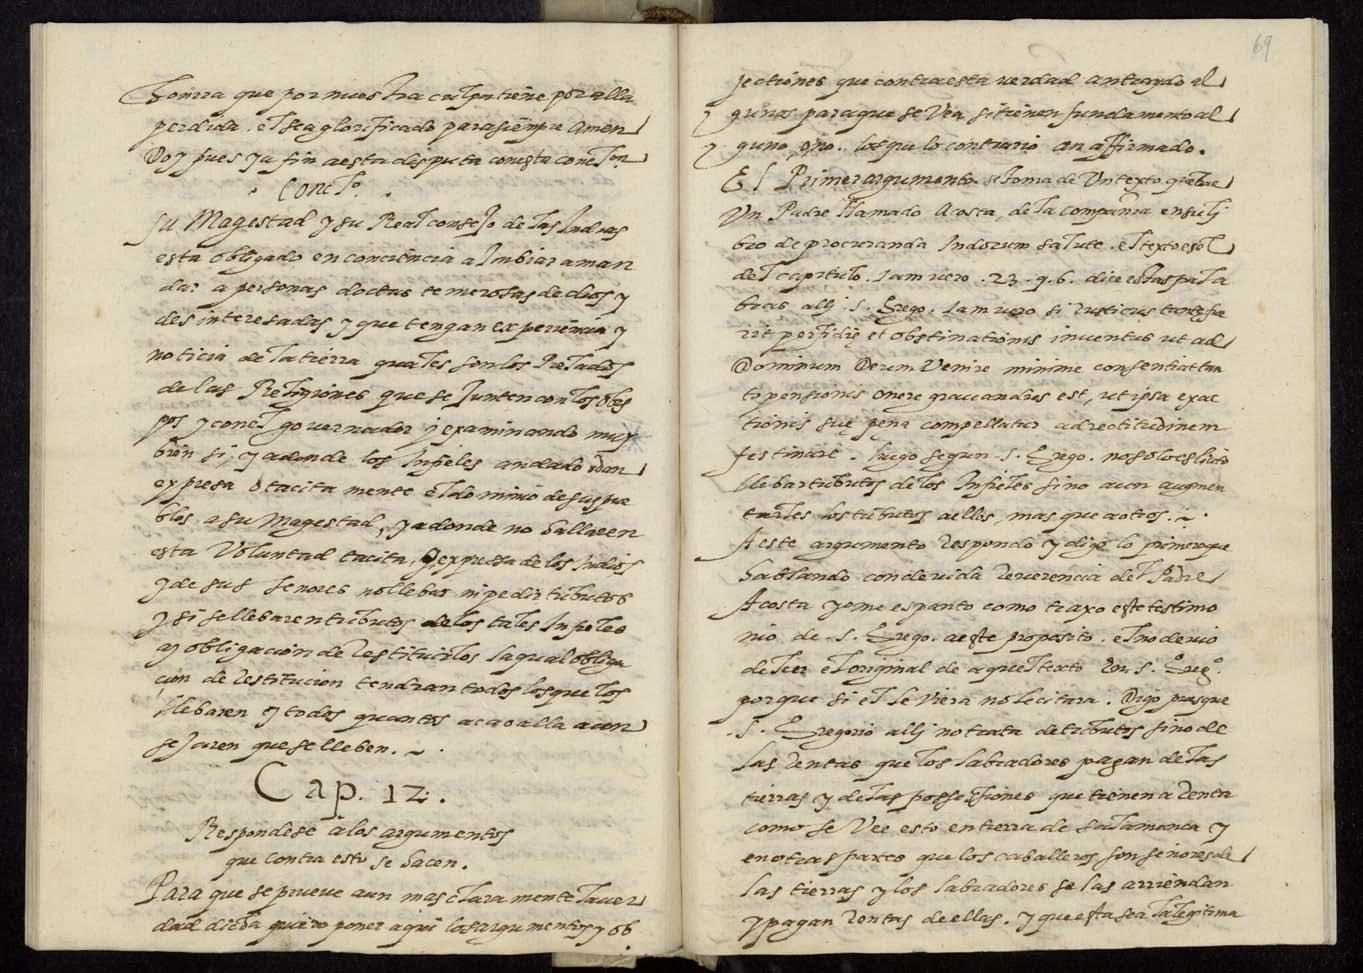 honrra que por nuestra culpa tiene por alla
perdida. el sea glorificado para siempre Amen
Doy pues ya fin a esta disputa con esta conclon
Conclo.
Su Magestad y su Real consejo de las Indias
esta obligado en conciencia a Imbiar a man
dar a personas doctas temerosas de dios y
desinteresadas y que tengan experiencia y
noticia de la tierra quales son los Prelados
de las Religiones que se Junten con los obis
pos y con el governador y examinando muy
bien si, y adonde los Infieles an dado
expresa o tacita mente el dominio de sus pue
blos a su Magestad, y adonde no hallaren
esta Voluntad tacita, o expressa de los Indios
y de sus señores no llebar ni pedir tributos
y si se llebaren tributos de los tales Infieles
ay obligacion de restituirlos la qual obliga
cion de restitucion tendran todos los que los
llebaren y todos quantos aca o alla acon
sejaren que se lleben. ~ .
Cap. 12.
Respondese a los argumentos
que contra esto se hacen.
Para que se prueve aun mas clara mente la ver
dad dicha quiero poner aqui los argumentos y ob
69
jectiones que contra esta verdad an traydo al
gunos para que se Vea si tienen fundamento al
guno, o no. los que lo contrario an affirmado.
El Primer argumento se toma de Un texto que trae
Un Padre llamado Acosta, de la compañia en su li
bro de procuranda Indorum salute. el texto es el
del capitulo. Iam vero. 23. q. 6. dice estas pala
bras alli S. Grego. Iam vero si rusticus tantę fue
rit perfidię et obstinationis inventus ut ad
Dominum Deum Venire minime consentiat tan
to pensionis onere gravandus est, ut ipsa exac
tionis suę pena compellatur ad rectitudinem
festinare. luego segun S. Grego. no solo es licito
llebar tributos de los Infieles sino aun augmen
tarles los tributos a ellos, mas que a otros. ~ .
A este argumento respondo y digo lo primero que
hablando con devida reverencia del Padre
Acosta yo me espanto como traxo este testimo
nio de S. Grego. a este proposito. el no devio
de leer el original de aquel texto con S. Grego.
porque si el le viera no le citara. Digo pues que
S. Gregorio alli no trata de tributos sino de
las rentas que los labradores pagan de las
tierras y de las possessiones que tienen a renta
como se Vee esto en tierra de salamanca y
en otras partes que los caballeros son señores de
las tierras y los labradores se las arriendan
y pagan rentas de ellas. y que esta sea la legitima